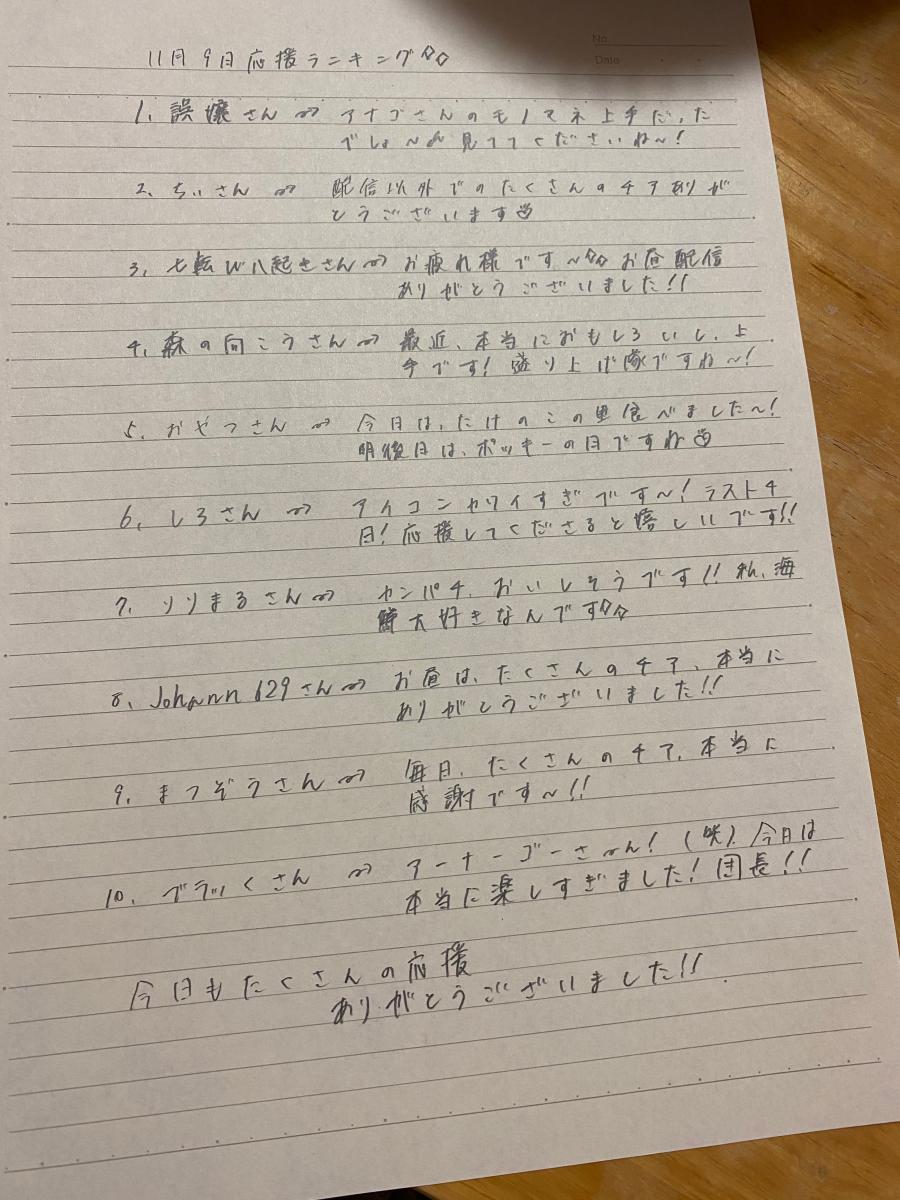 No.
Date
11月9日応援ランキング☆☆
1、誤嬢さん⇝ アナゴさんのモノマネ上手だった
でしょ〜♪見ててくださいね〜!
2、ちぃさん⇝ 配信以外でのたくさんのチアありが
とうございます
3、七転び八起きさん⇝ お疲れ様です〜☆☆お昼配信
ありがとうございました!!
4、森の向こうさん⇝ 最近、本当におもしろいし、上
手です!盛り上げ隊ですね〜!
5、おやつさん⇝ 今日は、たけのこの里食べました〜!
明後日は、ポッキーの日ですね
6、しろさん⇝ アイコンカワイすぎです〜!ラスト4
日!応援してくださると嬉しいです!!
7、りりまるさん⇝ カンパチ、おいしそうです!!私、海
鮮大好きなんです☆☆
8、Johann629さん⇝ お昼は、たくさんのチア、本当に
ありがとうございました!!
9、まつぞうさん⇝ 毎日、たくさんのチア、本当に
感謝です〜!!
10、ブラッくさん⇝ アーナーゴーさーん!(笑)今日は
本当に楽しすぎました!団長!!
今日もたくさんの応援
ありがとうございました!!